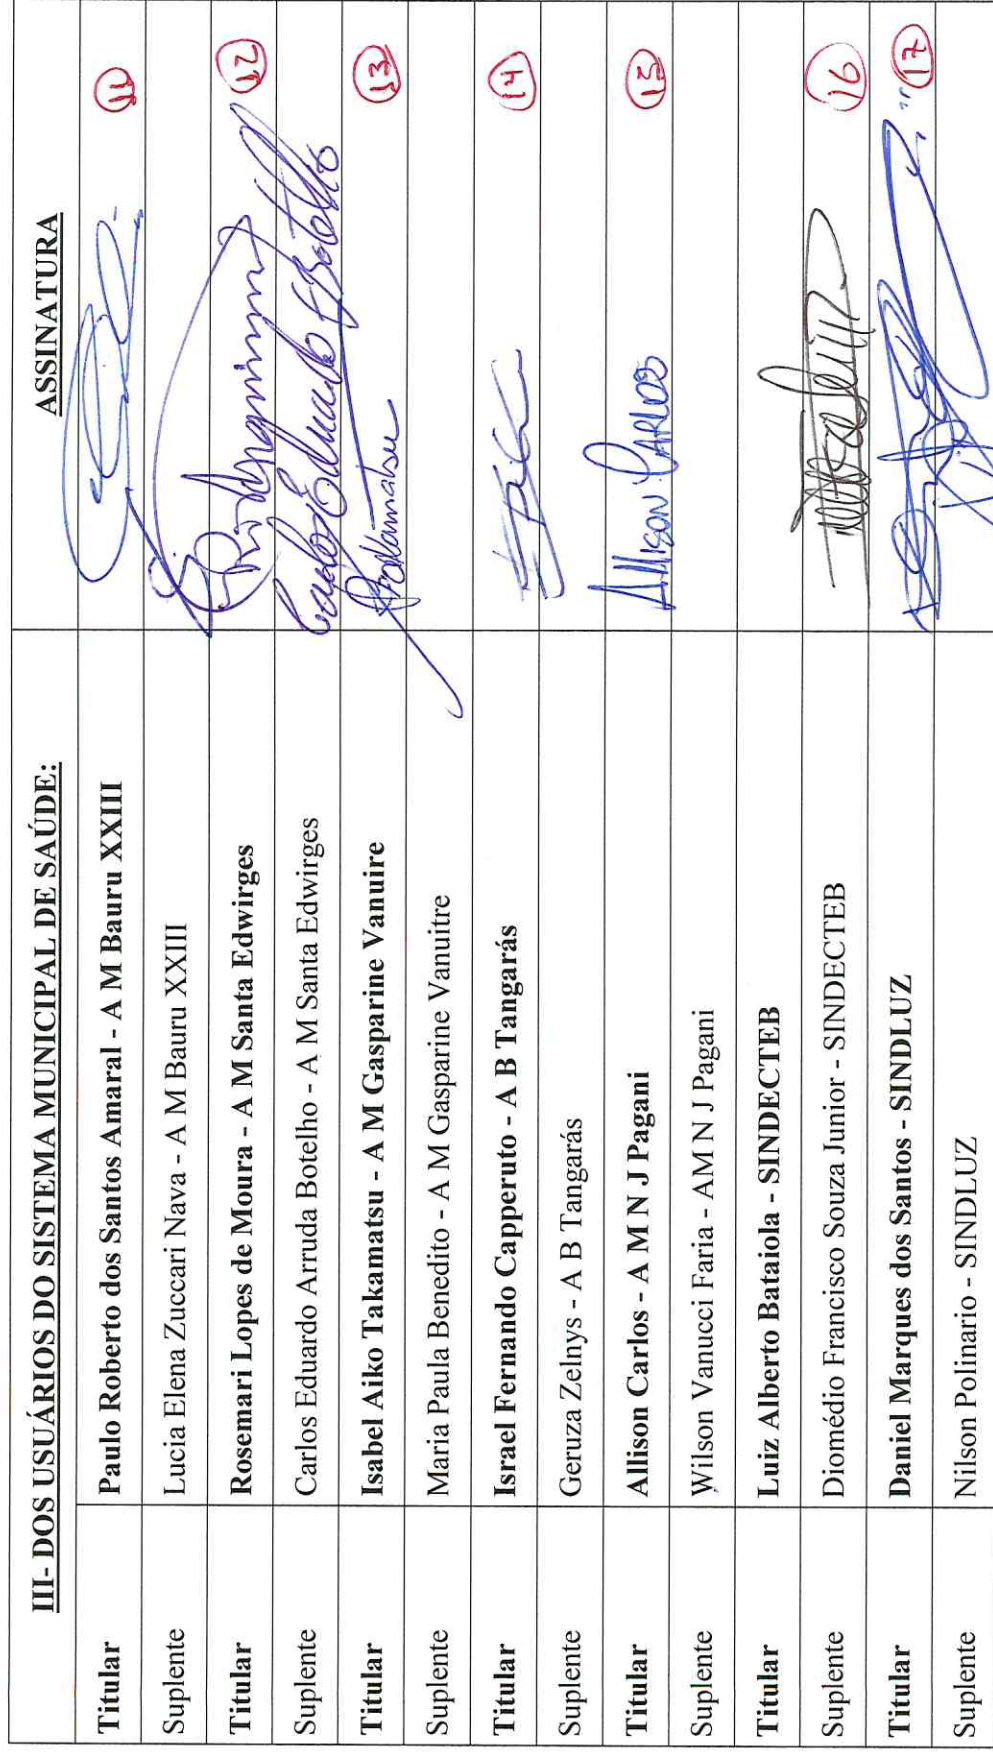 III- DOS USUÁRIOS DO SISTEMA MUNICIPAL DE SAÚDE: ASSINATURA
Titular Paulo Roberto dos Santos Amaral - A M Bauru XXIII 11
Suplente Lucia Elena Zuccari Nava - A M Bauru XXIII
Titular Rosemari Lopes de Moura - A M Santa Edwirges 12
Suplente Carlos Eduardo Arruda Botelho - A M Santa Edwirges Carlos Eduardo A Botelho
Titular Isabel Aiko Takamatsu - A M Gasparine Vanuire Takamatsu 13
Suplente Maria Paula Benedito - A M Gasparine Vanuitre
Titular Israel Fernando Capperuto - A B Tangarás 14
Suplente Geruza Zelnys - A B Tangarás
Titular Allison Carlos - A M N J Pagani Allison Carlos 15
Suplente Wilson Vanucci Faria - AM N J Pagani
Titular Luiz Alberto Bataiola - SINDECTEB
Suplente Diomédio Francisco Souza Junior - SINDECTEB 16
Titular Daniel Marques dos Santos - SINDLUZ 17
Suplente Nilson Polinario - SINDLUZ